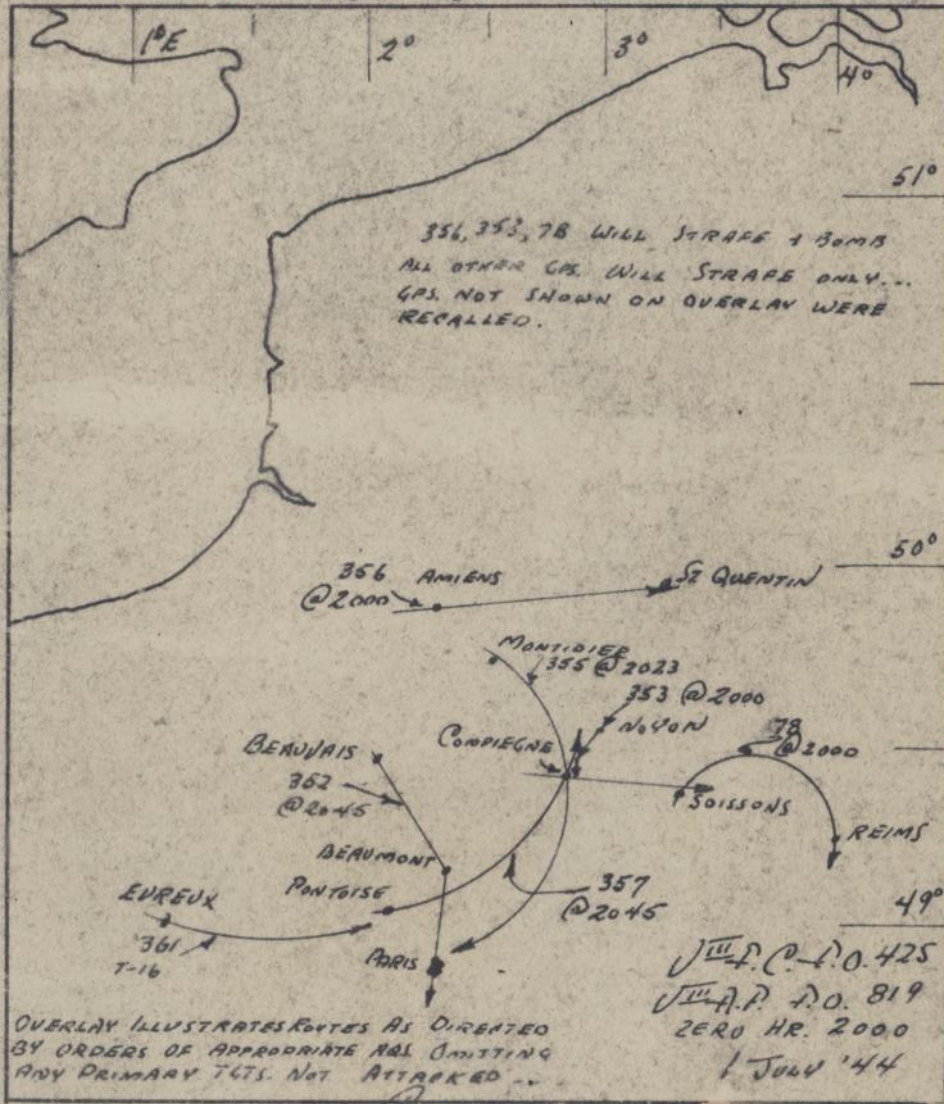 1°E
2°
3°
4°
51°
356, 353, 78 WILL STRAFE & BOMB
ALL OTHER GPS. WILL STRAFE ONLY...
GPS. NOT SHOWN ON OVERLAY WERE
RECALLED.
50°
356 AMIENS
@ 2000
ST QUENTIN
MONTIDIER
355 @ 2023
353 @ 2000
NOYON
78
@ 2000
COMPIEGNE
BEAUVAIS
352
@ 2045
SOISSONS
REIMS
BEAUMONT
PONTOISE
EVREUX
357
@ 2045
49°
361
T-16
PARIS
VIII F.C. F.O. 425
VIII A.F. F.O. 819
ZERO HR. 2000
1 JULY '44
OVERLAY ILLUSTRATES ROUTES AS DIRECTED
BY ORDERS OF APPROPRIATE HQS OMITTING
ANY PRIMARY TGTS. NOT ATTACKED...